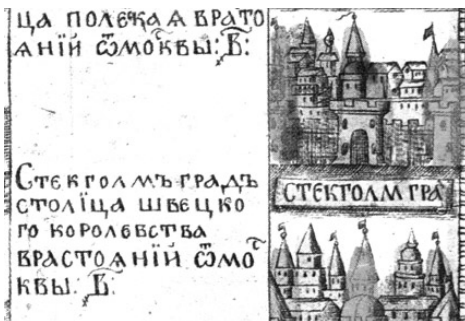 ца полскаѧ врато
ѧнїй ѿмоквы: в҃:
Стекголмъ градъ
столїца швецко
го королевства
врастоѧнїй ѿмо
квы. в҃:
СТЕКГОЛМ ГРА